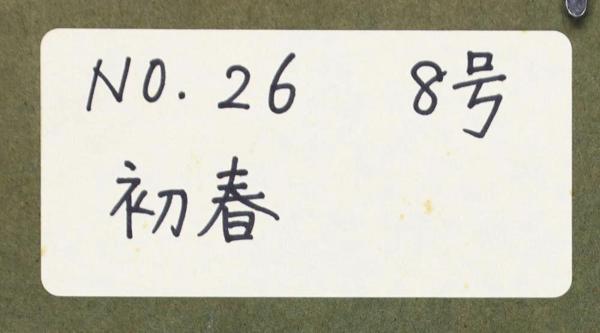 NO. 26 8号
初春